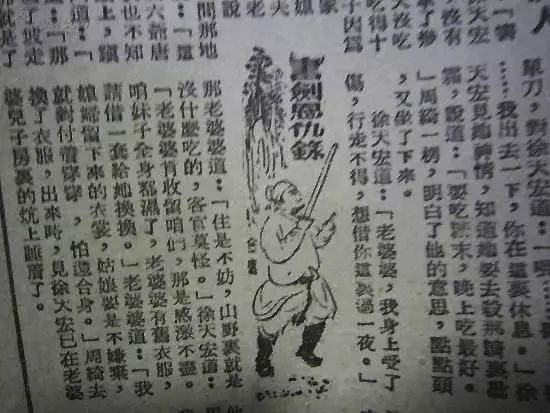 人
徐天宏
，沒有
拿了參
大沒吃
吃得十
子因爲
單刀，對徐天宏道：「嗯
……我出去一下，你在這裏休息。」徐
天宏見她神情，知道她要去殺
霜，說道：「要吃 末，晚上吃最好。
」周綺一楞，明白了他的意思，點點頭
，又坐了下來。
徐天宏道：「老婆婆，我身上受了
傷，行走不得，想借你這裏過一夜。」
書劍恩仇錄
那老婆婆道：「住是不妨，山野裏就是
沒什麼吃的，客官莫怪。」徐天宏道：
「老婆婆肯收留咱們，那是感激不盡。
咱妹子全身都濕了，老婆婆有舊衣服，
請借一套給她換換。」老婆婆道：「我
媳婦留下來的衣裳，姑娘要是不嫌棄，
就對付着穿穿，怕還合身。」周綺去
換了衣服，出來時，見徐天宏已在老婆
婆兒子房裏的炕上睡着了。
說
間那地
六爺唐
也不知
上，鎭
道：「
了坡走
「那